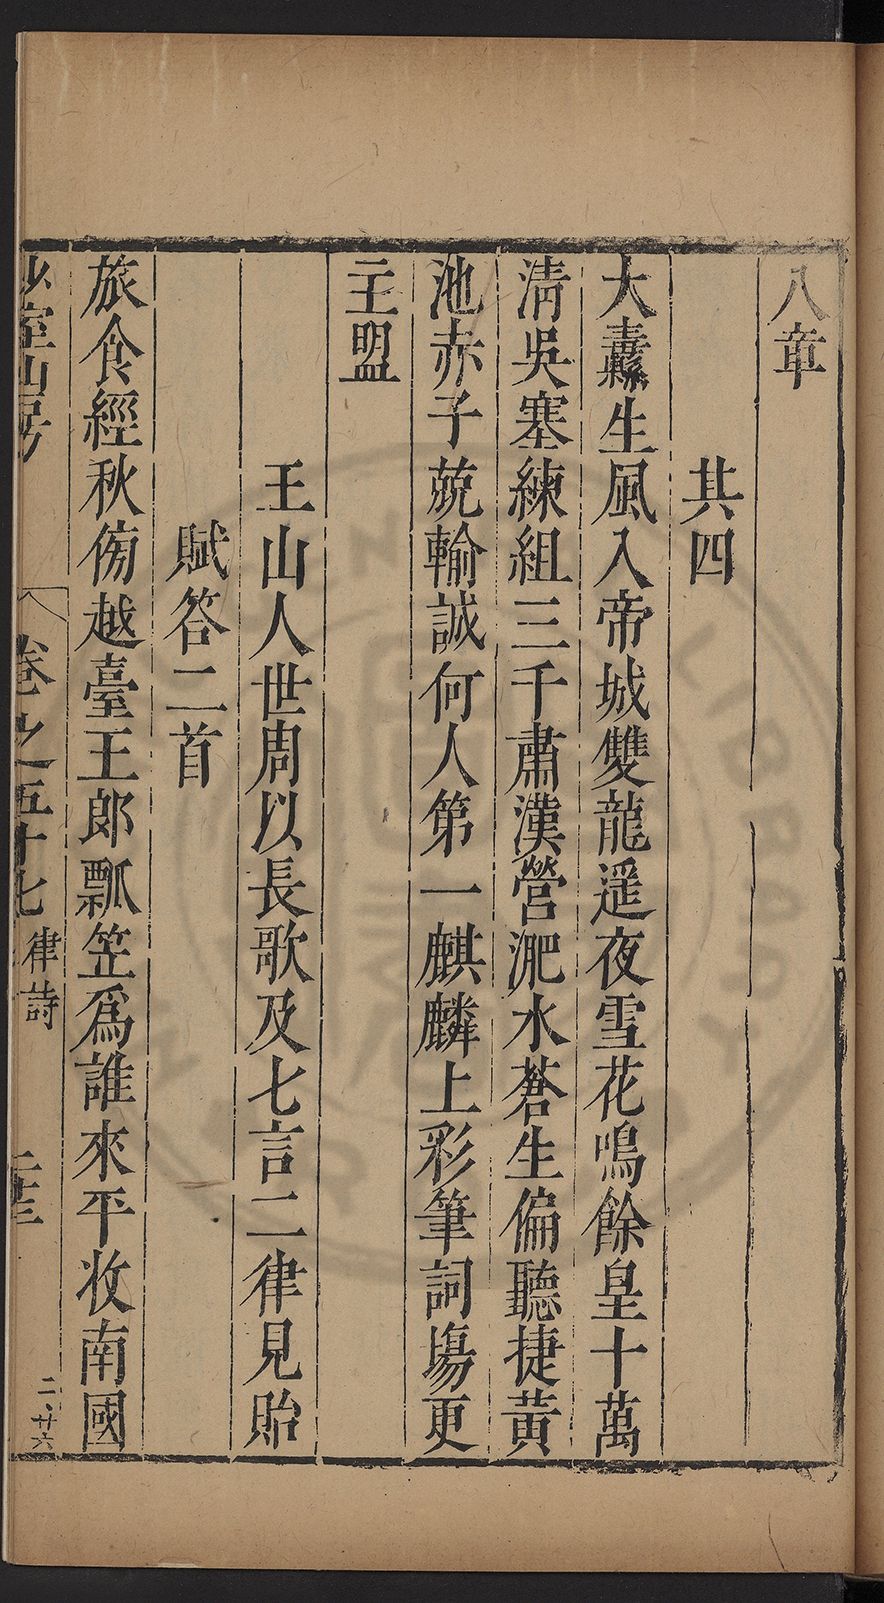 八章
其四
大纛生風入帝城雙龍遥夜雪花鳴餘皇十萬
淸吳塞練組三千肅漢營淝水蒼生偏聽捷黃
池赤子兢輸誠何人第一麒麟上彩筆詞塲更
主盟
王山人世周以長歌及七言二律見貽
賦答二首
旅食經秋傍越臺王郎瓢笠爲誰來平收南國
少室山房
卷之五十七
律詩
二十三
二廿六